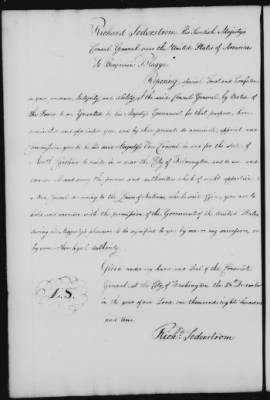 Richard Soderstrom His Swedish Majestys
Consul General over the United States of America
To Benjamin Blagge.
Reposing special Trust and Confidence
in your wisdom, Integrity and ability, I the said Consul General, by Virtue of
the Power to me Granted by his Majesty's Government for that purpose, have
nominated and appointed you and by these presents do nominate, appoint and
commission you to be his said Majesty's Vice Consul in and for the State of
North Carolina to reside in or near the City of Wilmington and to use and
exercise all and every the powers and authorities which of right appertain to
a Vice Consul according to the Laws of Nations, which said Office you are to
hold and exercise with the permission of the Government of the United States
during his Majesty's pleasure to be signified to you by me or my successor, or
by some other legal authority.
Given under my hand and Seal of the Consulate
General at the City of Washington the December
in the year of our Lord one thousand eight hundred
and nine
L.S.
Richd. Soderstrom